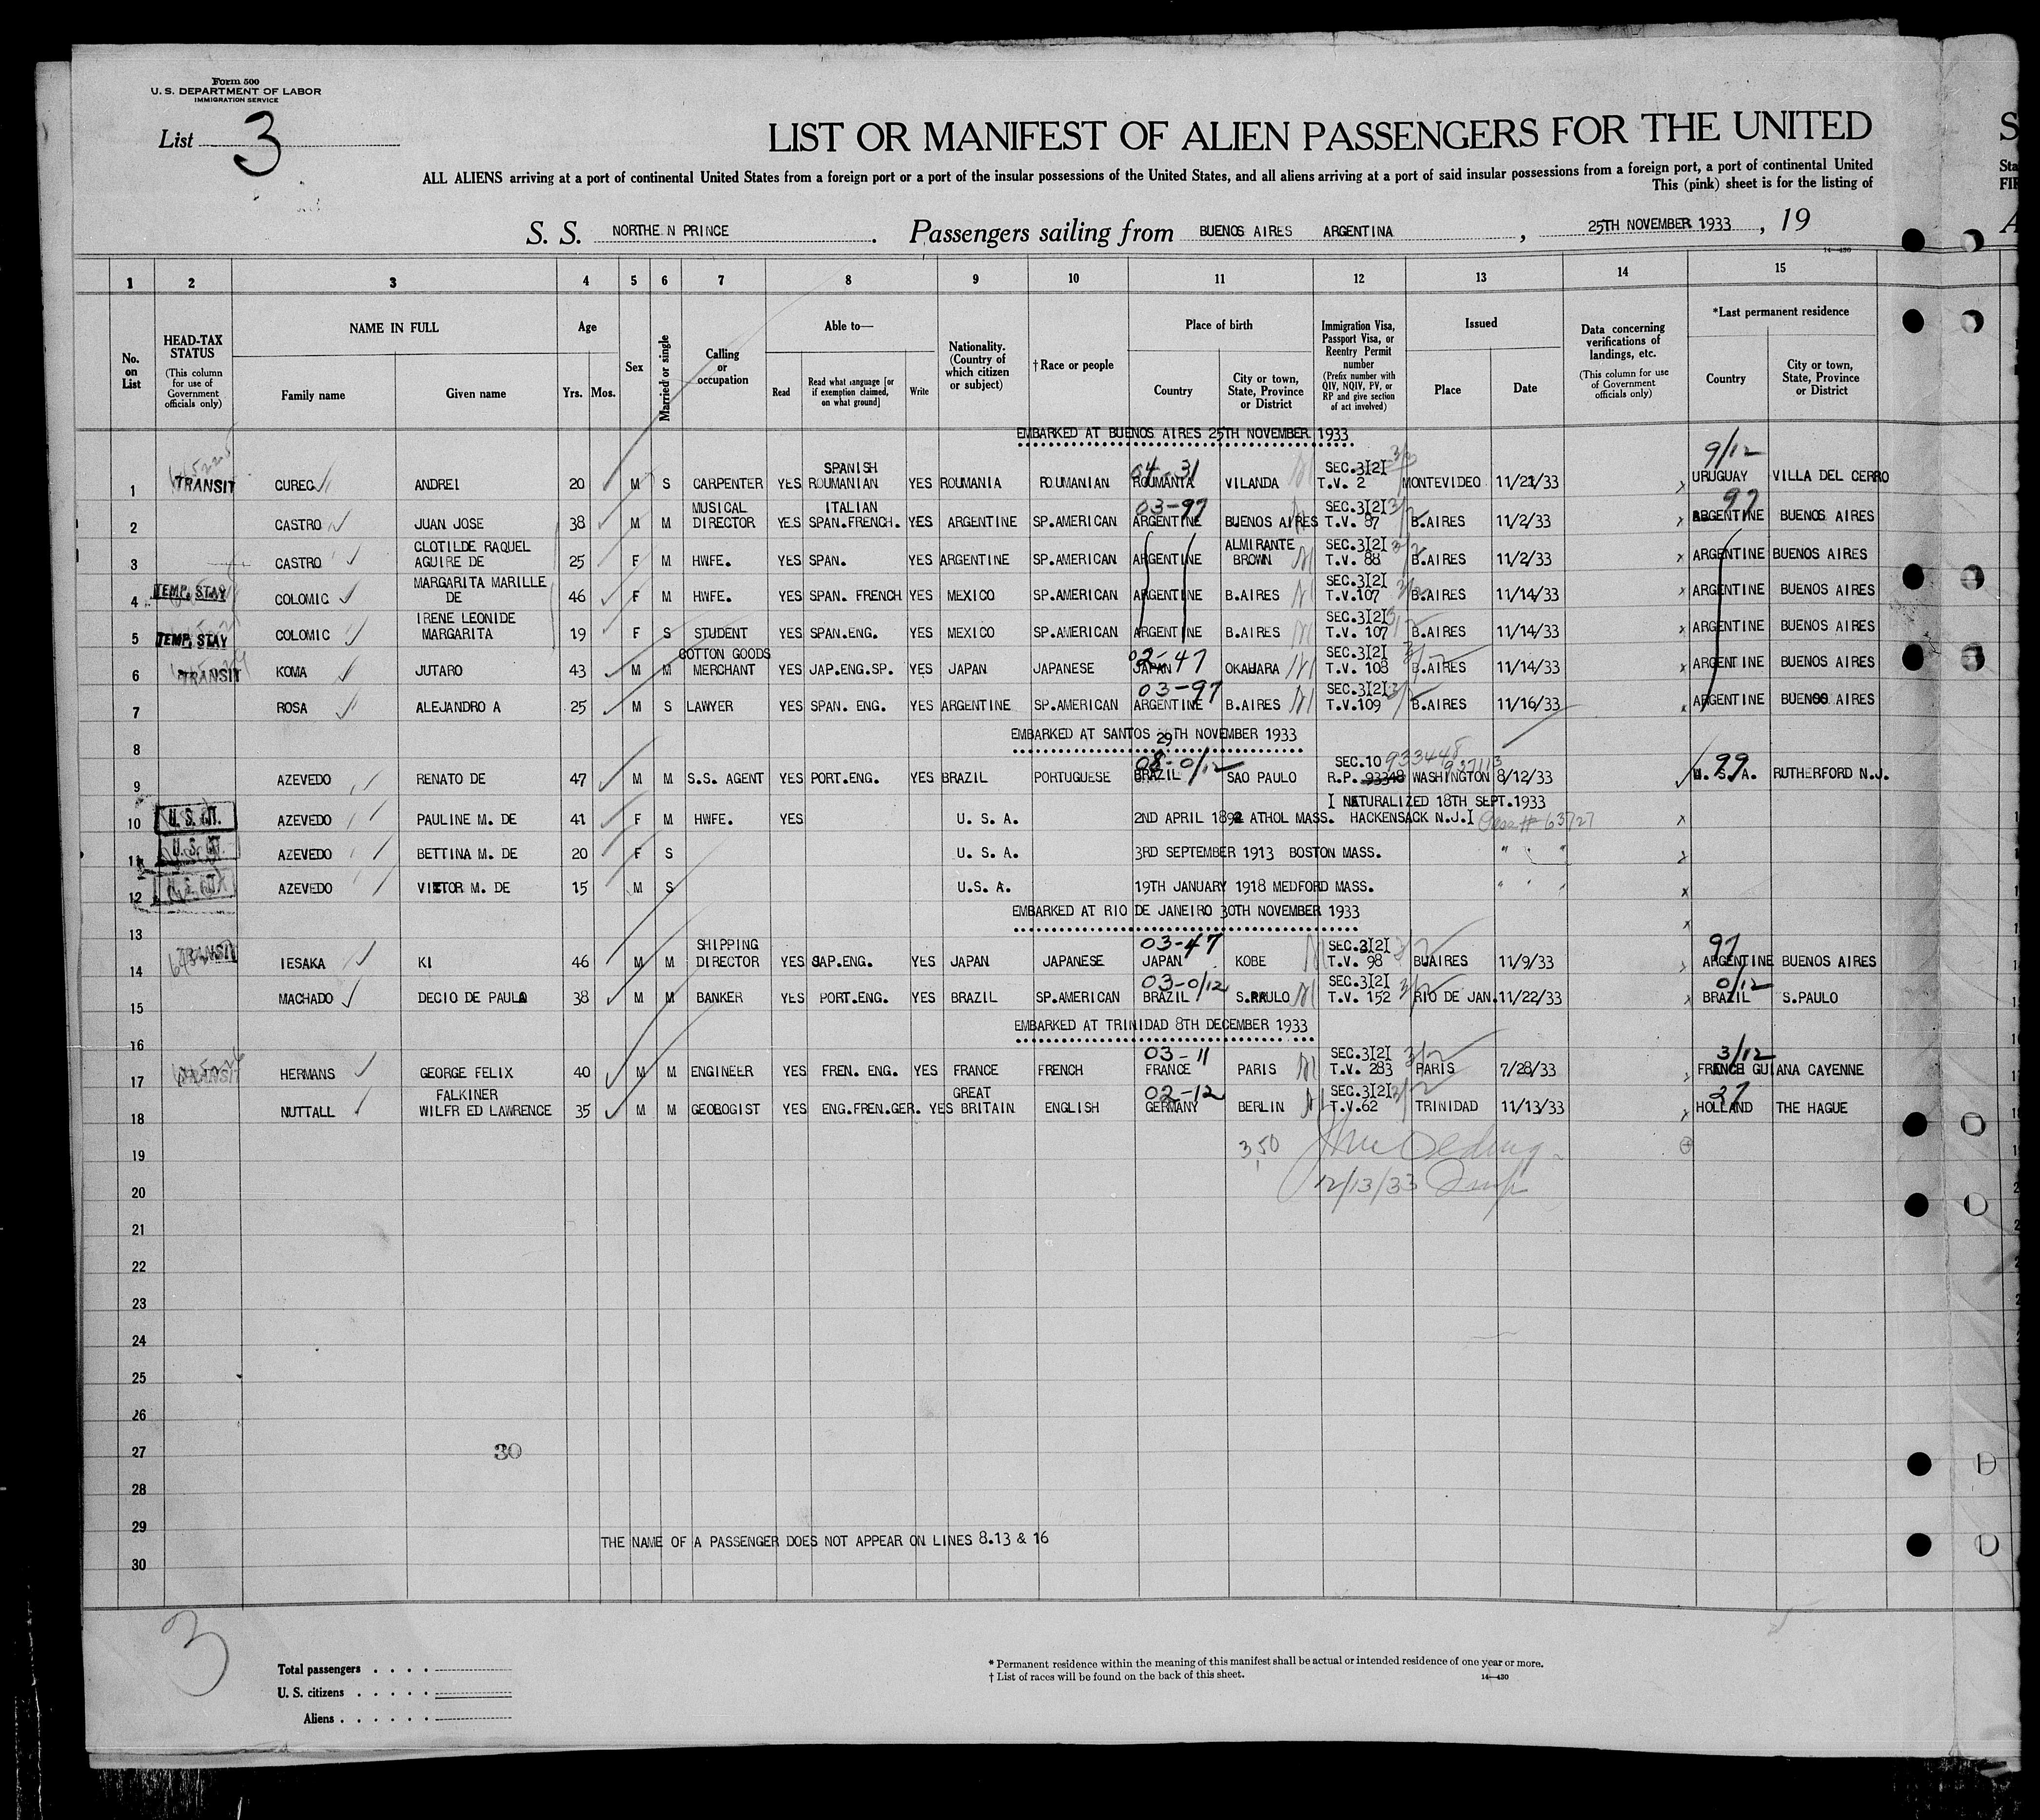 Form 500
U. S. DEPARTMENT OF LABOR
IMMIGRATION SERVICE
List 3
LIST OR MANIFEST OF ALIEN PASSENGERS FOR THE UNITED
ALL ALIENS arriving at a port of continental United States from a foreign port or a port of the insular possessions of the United States, and all aliens arriving at a port of said insular possessions from a foreign port, a port of continental United
This (pink) sheet is for the listing of
S. S. NORTHE N PRINCE . Passengers sailing from BUENOS AIRES ARGENTINA , 25TH NOVEMBER 1933 , 19
14—430
1 2 3 4 5 6 7 8 9 10 11 12 13 14 15
No. on List
HEAD-TAX STATUS (This column for use of Government officials only)
NAME IN FULL Family name Given name
Age Yrs. Mos.
Sex
Married or single
Calling or occupation
Able to— Read Read what language [or if exemption claimed, on what ground] Write
Nationality. (Country of which citizen or subject)
† Race or people
Place of birth Country City or town, State, Province or District
Immigration Visa, Passport Visa, or Reentry Permit number (Prefix number with QIV, NQIV, PV, or RP and give section of act involved)
Issued Place Date
Data concerning verifications of landings, etc. (This column for use of Government officials only)
*Last permanent residence Country City or town, State, Province or District
EMBARKED AT BUENOS AIRES 25TH NOVEMBER 1933
9/12
SPANISH 04-31 SEC.3I2I 3/2
1 TRANSIT CUREC ANDREI 20 M S CARPENTER YES ROUMANIAN YES ROUMANIA ROUMANIAN ROUMANIA VILANDA T.V. 2 MONTEVIDEO 11/21/33 URUGUAY VILLA DEL CERRO
MUSICAL ITALIAN 03-97 SEC.3I2I 3/2 97
2 CASTRO JUAN JOSE 38 M M DIRECTOR YES SPAN.FRENCH. YES ARGENTINE SP.AMERICAN ARGENTINE BUENOS AIRES T.V. 87 B.AIRES 11/2/33 ARGENTINE BUENOS AIRES
CLOTILDE RAQUEL ALMIRANTE SEC.3I2I 3/2
3 CASTRO AGUIRE DE 25 F M HWFE. YES SPAN. YES ARGENTINE SP.AMERICAN ARGENTINE BROWN T.V. 88 B.AIRES 11/2/33 ARGENTINE BUENOS AIRES
MARGARITA MARILLE SEC.3I2I 3/2
4 TEMP. STAY COLOMIC DE 46 F M HWFE. YES SPAN. FRENCH YES MEXICO SP.AMERICAN ARGENTINE B.AIRES T.V.107 B.AIRES 11/14/33 ARGENTINE BUENOS AIRES
IRENE LEONIDE SEC.3I2I 3/2
5 TEMP. STAY COLOMIC MARGARITA 19 F S STUDENT YES SPAN.ENG. YES MEXICO SP.AMERICAN ARGENTINE B.AIRES T.V. 107 B.AIRES 11/14/33 ARGENTINE BUENOS AIRES
COTTON GOODS 02-47 SEC.3I2I 3/2
6 TRANSIT KOMA JUTARO 43 M M MERCHANT YES JAP.ENG.SP. YES JAPAN JAPANESE JAPAN OKAWARA T.V. 108 B.AIRES 11/14/33 ARGENTINE BUENOS AIRES
03-97 SEC.3I2I 3/2
7 ROSA ALEJANDRO A 25 M S LAWYER YES SPAN. ENG. YES ARGENTINE SP.AMERICAN ARGENTINE B.AIRES T.V.109 B.AIRES 11/16/33 ARGENTINE BUENOS AIRES
8 EMBARKED AT SANTOS 29TH NOVEMBER 1933
08-0/12 SEC.10 933448 937113 99
9 AZEVEDO RENATO DE 47 M M S.S. AGENT YES PORT.ENG. YES BRAZIL PORTUGUESE BRAZIL SAO PAULO R.P. 93348 WASHINGTON 8/12/33 U. S. A. RUTHERFORD N.J.
I NATURALIZED 18TH SEPT.1933
10 U. S. CIT. AZEVEDO PAULINE M. DE 41 F M HWFE. YES U. S. A. 2ND APRIL 1892 ATHOL MASS. HACKENSACK N.J.I 63727
11 U. S. CIT. AZEVEDO BETTINA M. DE 20 F S U. S. A. 3RD SEPTEMBER 1913 BOSTON MASS. " " "
12 U. S. CIT. AZEVEDO VICTOR M. DE 15 M S U.S. A. 19TH JANUARY 1918 MEDFORD MASS. " " "
13 EMBARKED AT RIO DE JANEIRO 30TH NOVEMBER 1933
SHIPPING 03-47 SEC.3I2I 3/2 97
14 TRANSIT IESAKA KI 46 M M DIRECTOR YES JAP.ENG. YES JAPAN JAPANESE JAPAN KOBE T.V. 98 B.AIRES 11/9/33 ARGENTINE BUENOS AIRES
03-0/12 SEC.3I2I 3/2 0/12
15 MACHADO DECIO DE PAULA 38 M M BANKER YES PORT.ENG. YES BRAZIL SP.AMERICAN BRAZIL S.PAULO T.V. 152 RIO DE JAN. 11/22/33 BRAZIL S.PAULO
16 EMBARKED AT TRINIDAD 8TH DECEMBER 1933
03-11 SEC.3I2I 3/2 3/12
17 TRANSIT HERMANS GEORGE FELIX 40 M M ENGINEER YES FREN. ENG. YES FRANCE FRENCH FRANCE PARIS T.V. 283 PARIS 7/28/33 FRANCH GUIANA CAYENNE
FALKINER GREAT 02-12 SEC.3I2I 3/2 27
18 NUTTALL WILFR ED LAWRENCE 35 M M GEOLOGIST YES ENG.FREN.GER. YES BRITAIN ENGLISH GERMANY BERLIN T.V.62 TRINIDAD 11/13/33 HOLLAND THE HAGUE
19 3,50
20 12/13/33
21
22
23
24
25
26
27 30
28
29 THE NAME OF A PASSENGER DOES NOT APPEAR ON LINES 8.13 & 16
30
3
Total passengers . . . .
U. S. citizens . . . . .
Aliens . . . . . .
* Permanent residence within the meaning of this manifest shall be actual or intended residence of one year or more.
† List of races will be found on the back of this sheet.
14—430